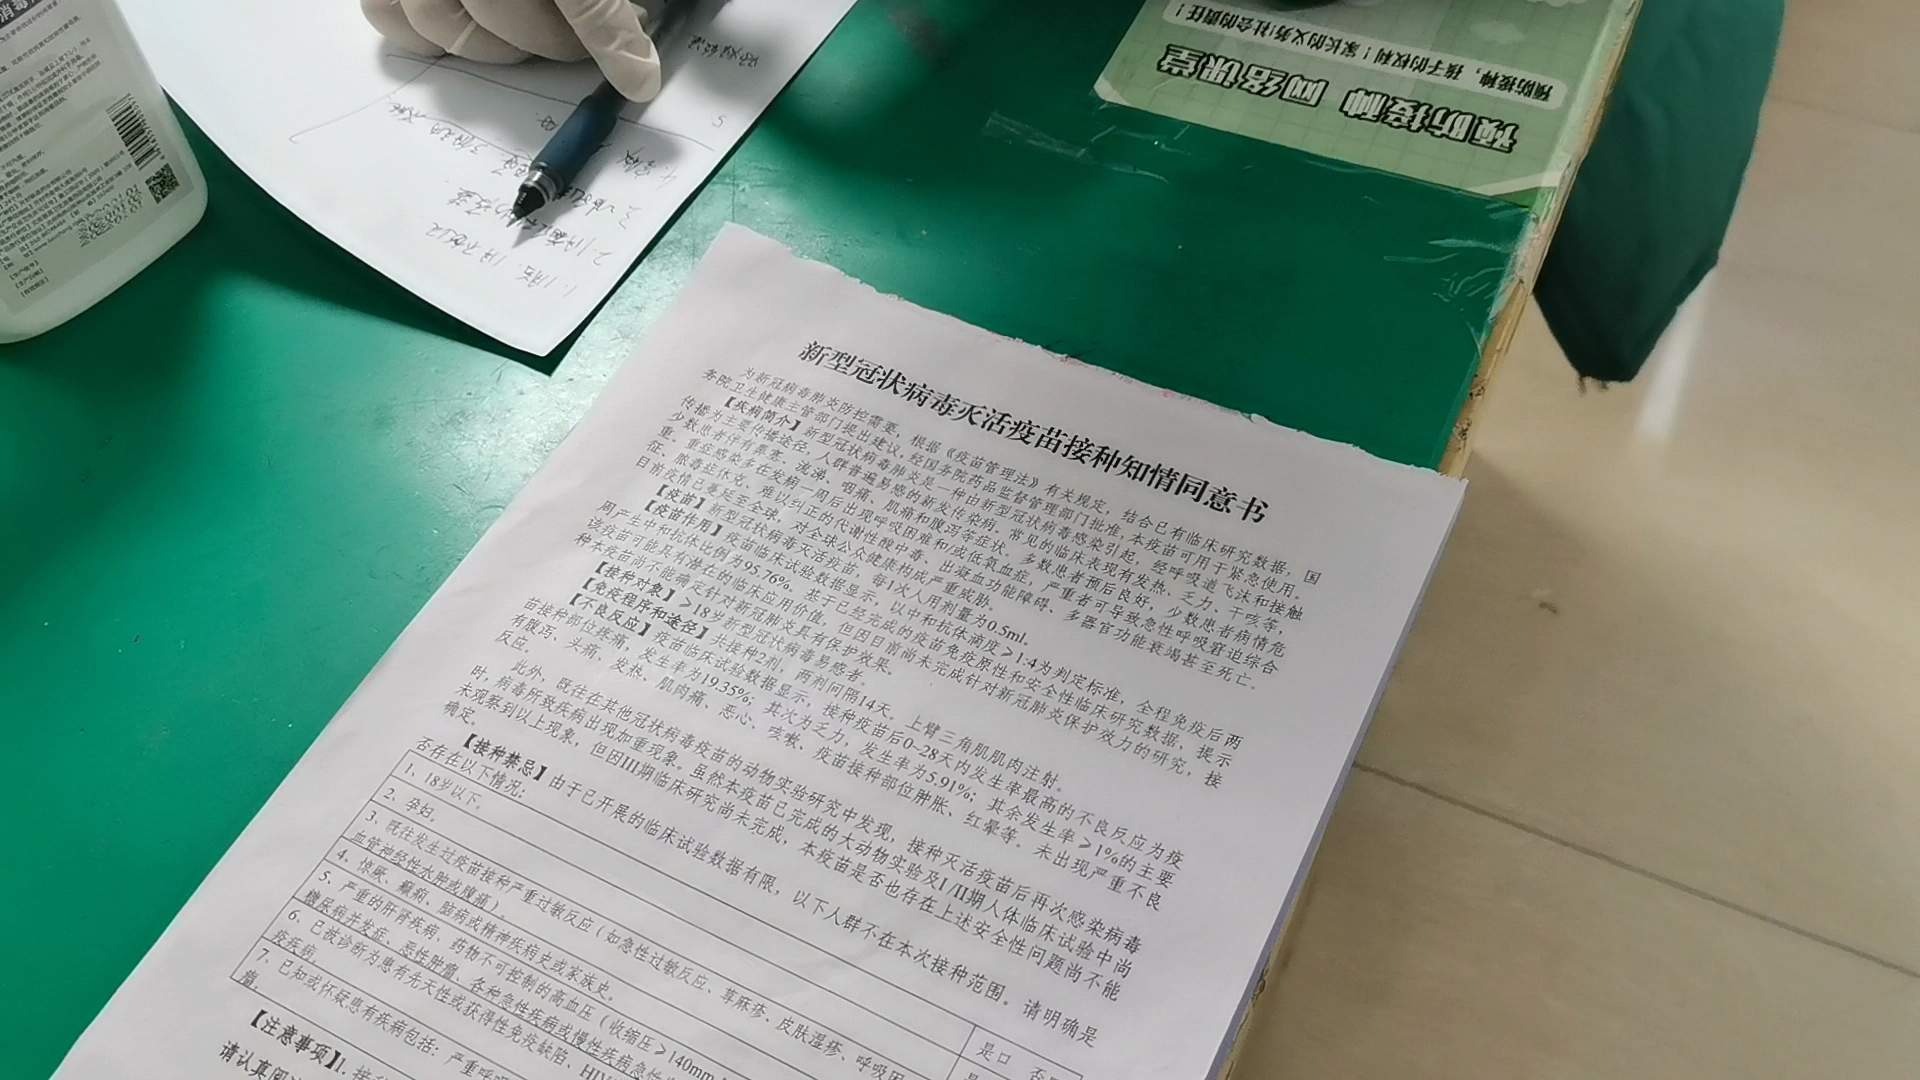 新型冠状病毒灭活疫苗接种知情同意书
为新冠病毒肺炎防控需要，根据《疫苗管理法》有关规定，结合已有临床研究数据，国
务院卫生健康主管部门提出建议，经国务院药品监督管理部门批准，本疫苗可用于紧急使用。
【疾病简介】新型冠状病毒肺炎是一种由新型冠状病毒感染引起，经呼吸道飞沫和接触
传播为主要传播途径，人群普遍易感的新发传染病。常见的临床表现有发热、乏力、干咳等，
少数患者伴有鼻塞、流涕、咽痛、肌痛和腹泻等症状。多数患者预后良好，少数患者病情危
重。重症感染多在发病一周后出现呼吸困难和/或低氧血症，严重者可导致急性呼吸窘迫综合
征、脓毒症休克、难以纠正的代谢性酸中毒、出凝血功能障碍、多器官功能衰竭甚至死亡。
目前疫情已蔓延至全球，对全球公众健康构成严重威胁。
【疫苗】新型冠状病毒灭活疫苗，每1次人用剂量为0.5ml。
【疫苗作用】疫苗临床试验数据显示，以中和抗体滴度≥1:4为判定标准，全程免疫后两
周产生中和抗体比例为95.76%。基于已经完成的疫苗免疫原性和安全性临床研究数据，提示
该疫苗可能具有潜在的临床应用价值，但因目前尚未完成针对新冠肺炎保护效力的研究，接
种本疫苗尚不能确定针对新冠肺炎具有保护效果。
【接种对象】≥18岁新型冠状病毒易感者。
【免疫程序和途径】共接种2剂，两剂间隔14天。上臂三角肌肌肉注射。
【不良反应】疫苗临床试验数据显示，接种疫苗后0-28天内发生率最高的不良反应为疫
苗接种部位疼痛，发生率为19.35%；其次为乏力，发生率为5.91%；其余发生率≥1%的主要
有腹泻、头痛、发热、肌肉痛、恶心、咳嗽、疫苗接种部位肿胀、红晕等。未出现严重不良
反应。
此外，既往在其他冠状病毒疫苗的动物实验研究中发现，接种灭活疫苗后再次感染病毒
时，病毒所致疾病出现加重现象。虽然本疫苗已完成的大动物实验及I/II期人体临床试验中尚
未观察到以上现象，但因III期临床研究尚未完成，本疫苗是否也存在上述安全性问题尚不能
确定。
【接种禁忌】由于已开展的临床试验数据有限，以下人群不在本次接种范围。请明确是
否存在以下情况：
1、18岁以下。
是口 否
2、孕妇。
3、既往发生过疫苗接种严重过敏反应（如急性过敏反应、荨麻疹、皮肤湿疹、呼吸困
血管神经性水肿或腹痛）。
4、惊厥、癫痫、脑病或精神疾病史或家族史。
5、严重的肝肾疾病、药物不可控制的高血压（收缩压≥140mm
糖尿病并发症、恶性肿瘤、各种急性疾病或慢性疾病急性
6、已被诊断为患有先天性或获得性免疫缺陷、HIV
疫疾病。
7、已知或怀疑患有疾病包括：严重呼
瘤。
【注意事项】1.接
请认真阅
预防接种 网络课堂
预防接种，孩子的权利！家长的义务!社会的责任！
消毒